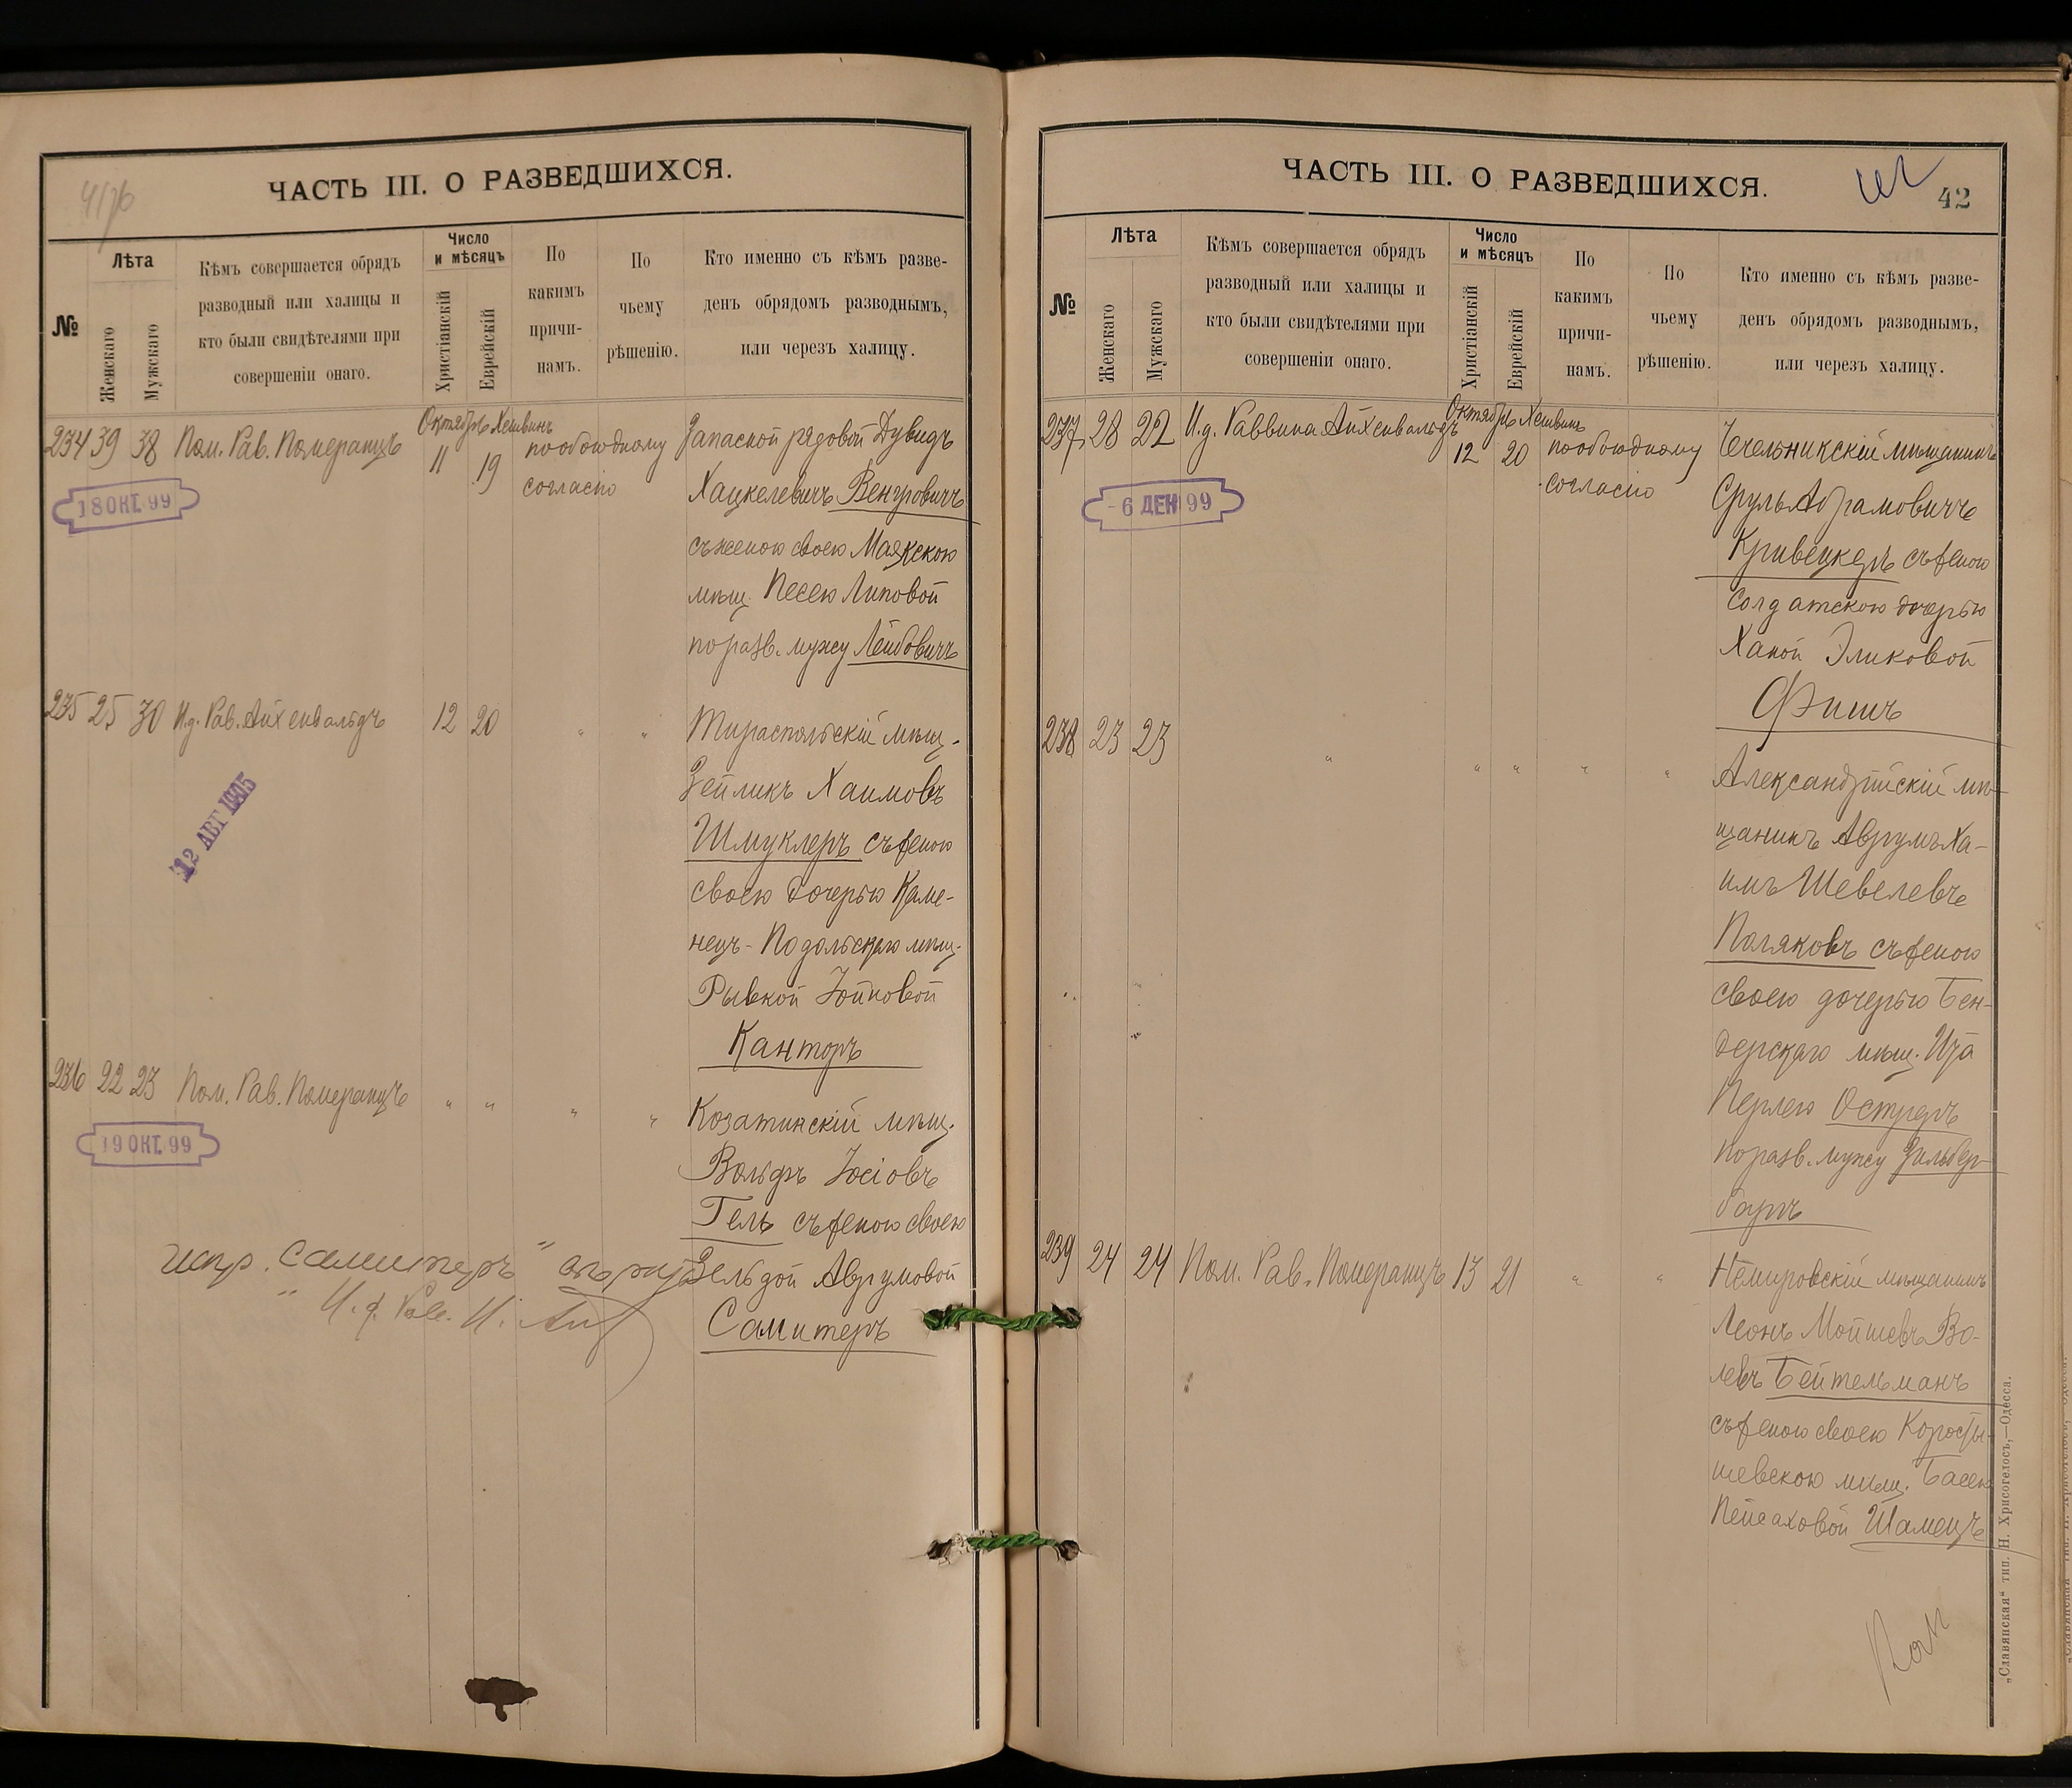 ЧАСТЬ III. О РАЗВЕДШИХСЯ.
№
Лѣта
Женскаго
Мужскаго
Кѣмъ совершается обрядъ
разводный или халицы и
кто были свидѣтелями при
совершеніи онаго.
Число
и мѣсяцъ
Христіанскій
Еврейскій
По
какимъ
причи-
намъ.
По
чьему
рѣшенію.
Кто именно съ кѣмъ разве-
денъ обрядомъ разводнымъ,
или черезъ халицу.
Октябрь Хешвинъ
234 39 38 Пом. Рав. Померанцъ 11 19 пообоюдному
согласію
Запасной рядовой Дувидъ
Хацкелевичъ Венгровичъ
съ женою своею Маякскою
мѣщ. Песею Липовой
по разв. мужу Лейбовичъ
18 ОКТ. 99
235 25 30 И.д. Рав. Айхенвальдъ 12 20 " "
Тираспольскій мѣщ.
Зейликъ Хаимовъ
Шмуклеръ съ женою
своею дочерью Каме-
нецъ-Подольскаго мѣщ.
Рывкой Іойновой
Канторъ
12 АВГ 1905
236 22 23 Пом. Рав. Померанцъ " " " "
Козатинскій мѣщ.
Вольфъ Іосіовъ
Гель съ женою своею
Зельдой Аврумовой
Самитеръ
19 ОКТ. 99
испр. Самитеръ"
И. д. Рав. И.
ЧАСТЬ III. О РАЗВЕДШИХСЯ.
42
№
Лѣта
Женскаго
Мужскаго
Кѣмъ совершается обрядъ
разводный или халицы и
кто были свидѣтелями при
совершеніи онаго.
Число
и мѣсяцъ
Христіанскій
Еврейскій
По
какимъ
причи-
намъ.
По
чьему
рѣшенію.
Кто именно съ кѣмъ разве-
денъ обрядомъ разводнымъ,
или черезъ халицу.
Октябрь Хешвинъ
237 28 22 И.д. Раввина Айхенвальдъ 12 20 пообоюдному
согласію
Чечельникскій мѣщанинъ
Сруль Абрамовичъ
Кривецкеръ съ женою
солдатскою дочерью
Ханой Эликовой
Фишъ
- 6 ДЕК 99
238 23 23 " " " " "
Александрійскій мѣ-
щанинъ Аврумъ Ха-
имъ Шевелевъ
Поляковъ съ женою
своею дочерью Бен-
дерскаго мѣщ. Ида
Перлею Остреръ
по разв. мужу Зильбер-
баръ
239 24 24 Пом. Рав. Померанцъ 13 21 " "
Немировскій мѣщанинъ
Леонъ Мойшевъ Во-
левъ Бейтельманъ
съ женою своею Коросты-
шевскою мѣщ. Басею
Пейсаховой Шамецъ
„Славянская" тип. Н. Хрисогелосъ,—Одесса.